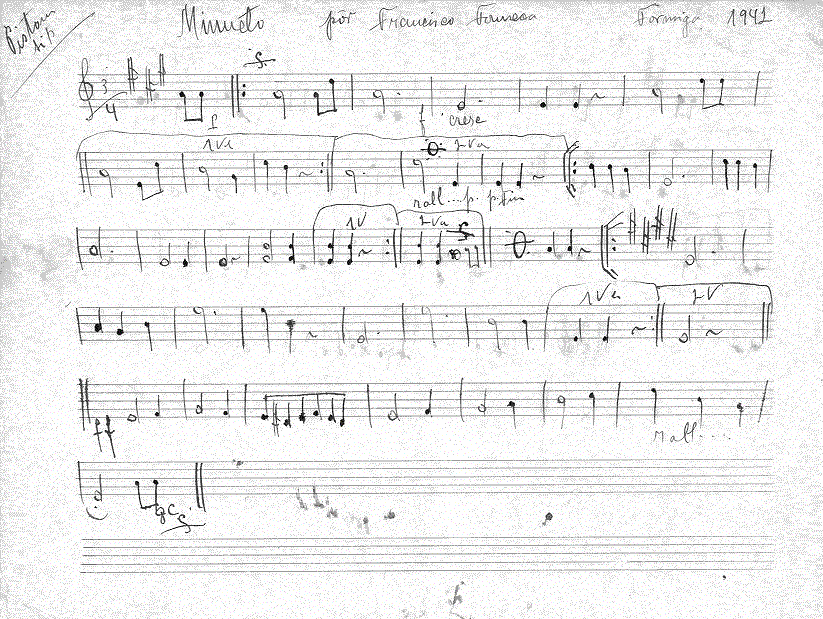 Pistom
sib
Minueto por Francisco Fonseca Formiga 1941
3
4
p
f cresc
1Va
2Va
rall... p. p. Fin
1V
2Va
1Va
2V
ff
rall....